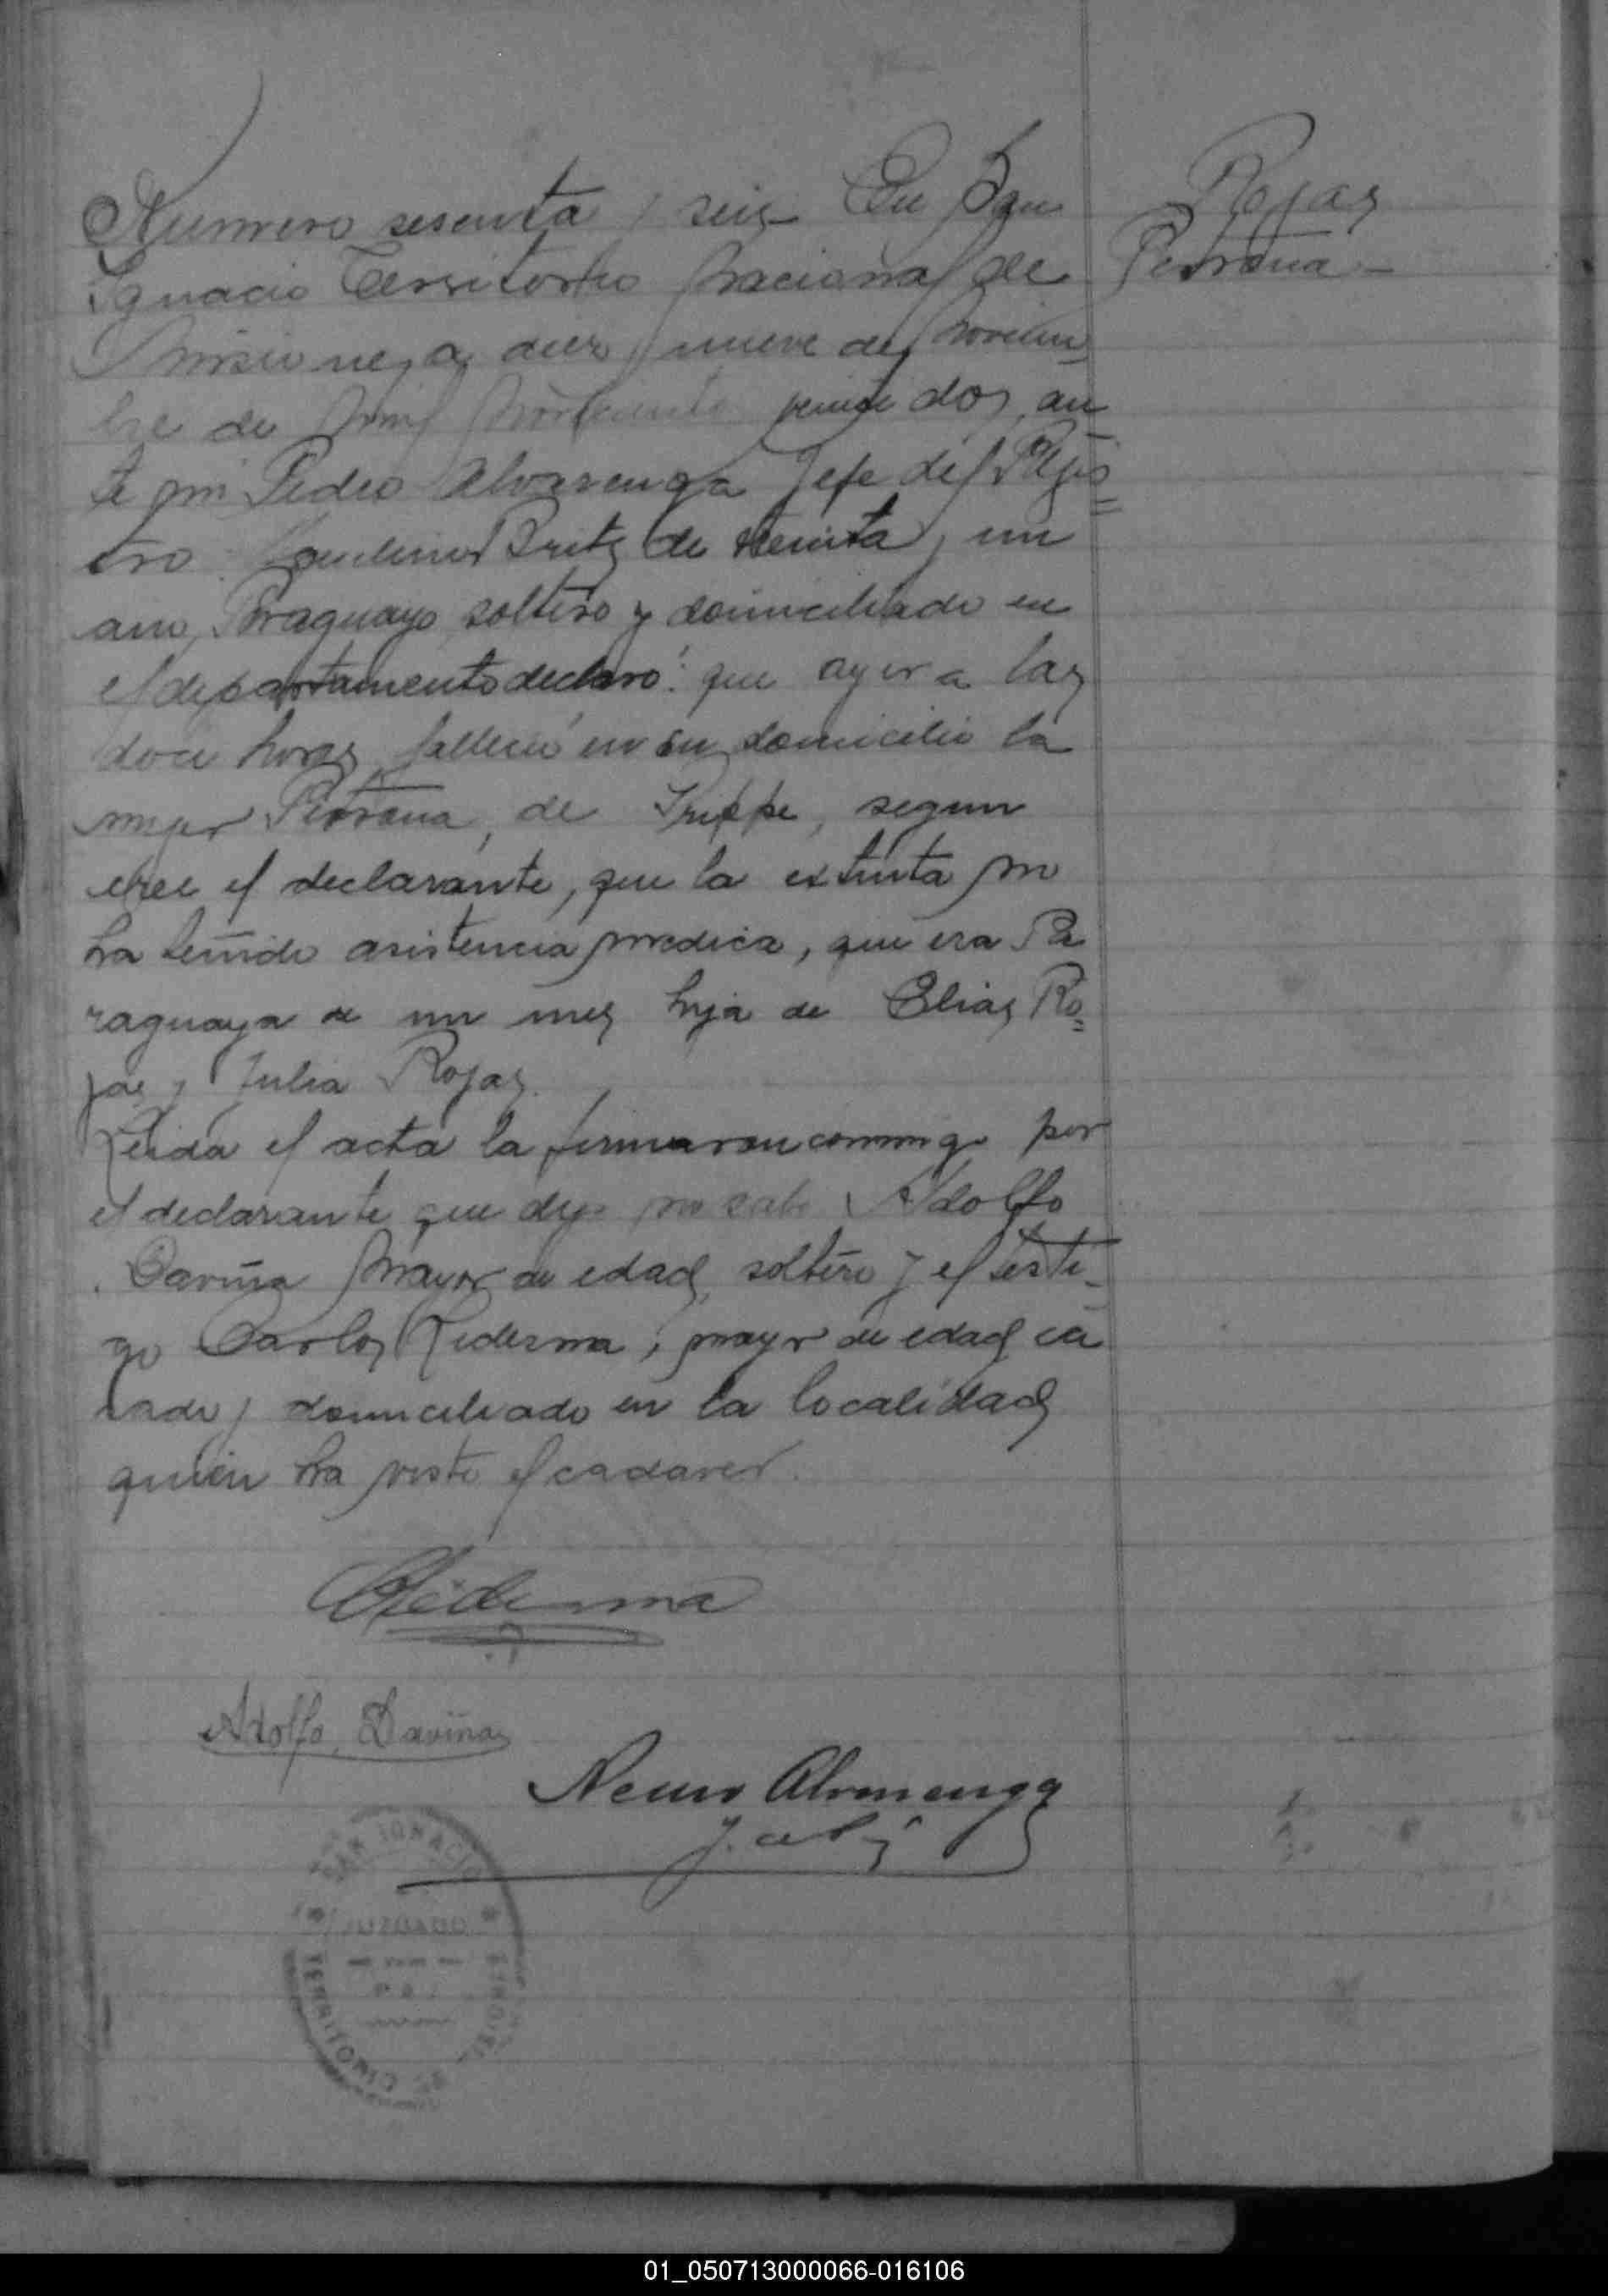 Numero sesenta y seis En San
Ignacio Territorio Nacional de
Misiones a diez y nueve de Noviem
bre de mil novecientos veinte dos, an
te mi Pedro Alvarenga Jefe del Regis=
tro Britz de treinta y un
ano, Paraguayo soltero y domiciliado en
el departamento declaró: que ayer a las
doce horas fallecio en su domicilio la
mujer Petrona, de Grippe, segun
cree el declarante, que la extinta no
ha tenido asistencia medica, que era Pa
raguaya de un mes hija de Elias Ro=
jas y Julia Rojas.
Leida el acta la firmaron conmigo por
el declarante que dijo no sabe Adolfo
Daviña mayor de edad, soltero y el testi-
go Carlos Ledesma, mayor de edad ca
sado y domiciliado en la localidad
quien ha visto el cadaver.
Rojas
Petrona -
CLedesma
Adolfo Daviña
Alvarenga
SAN IGNACIO
JUZGADO
DE
PAZ
TERRITORIO DE MISIONES
01_050713000066-016106